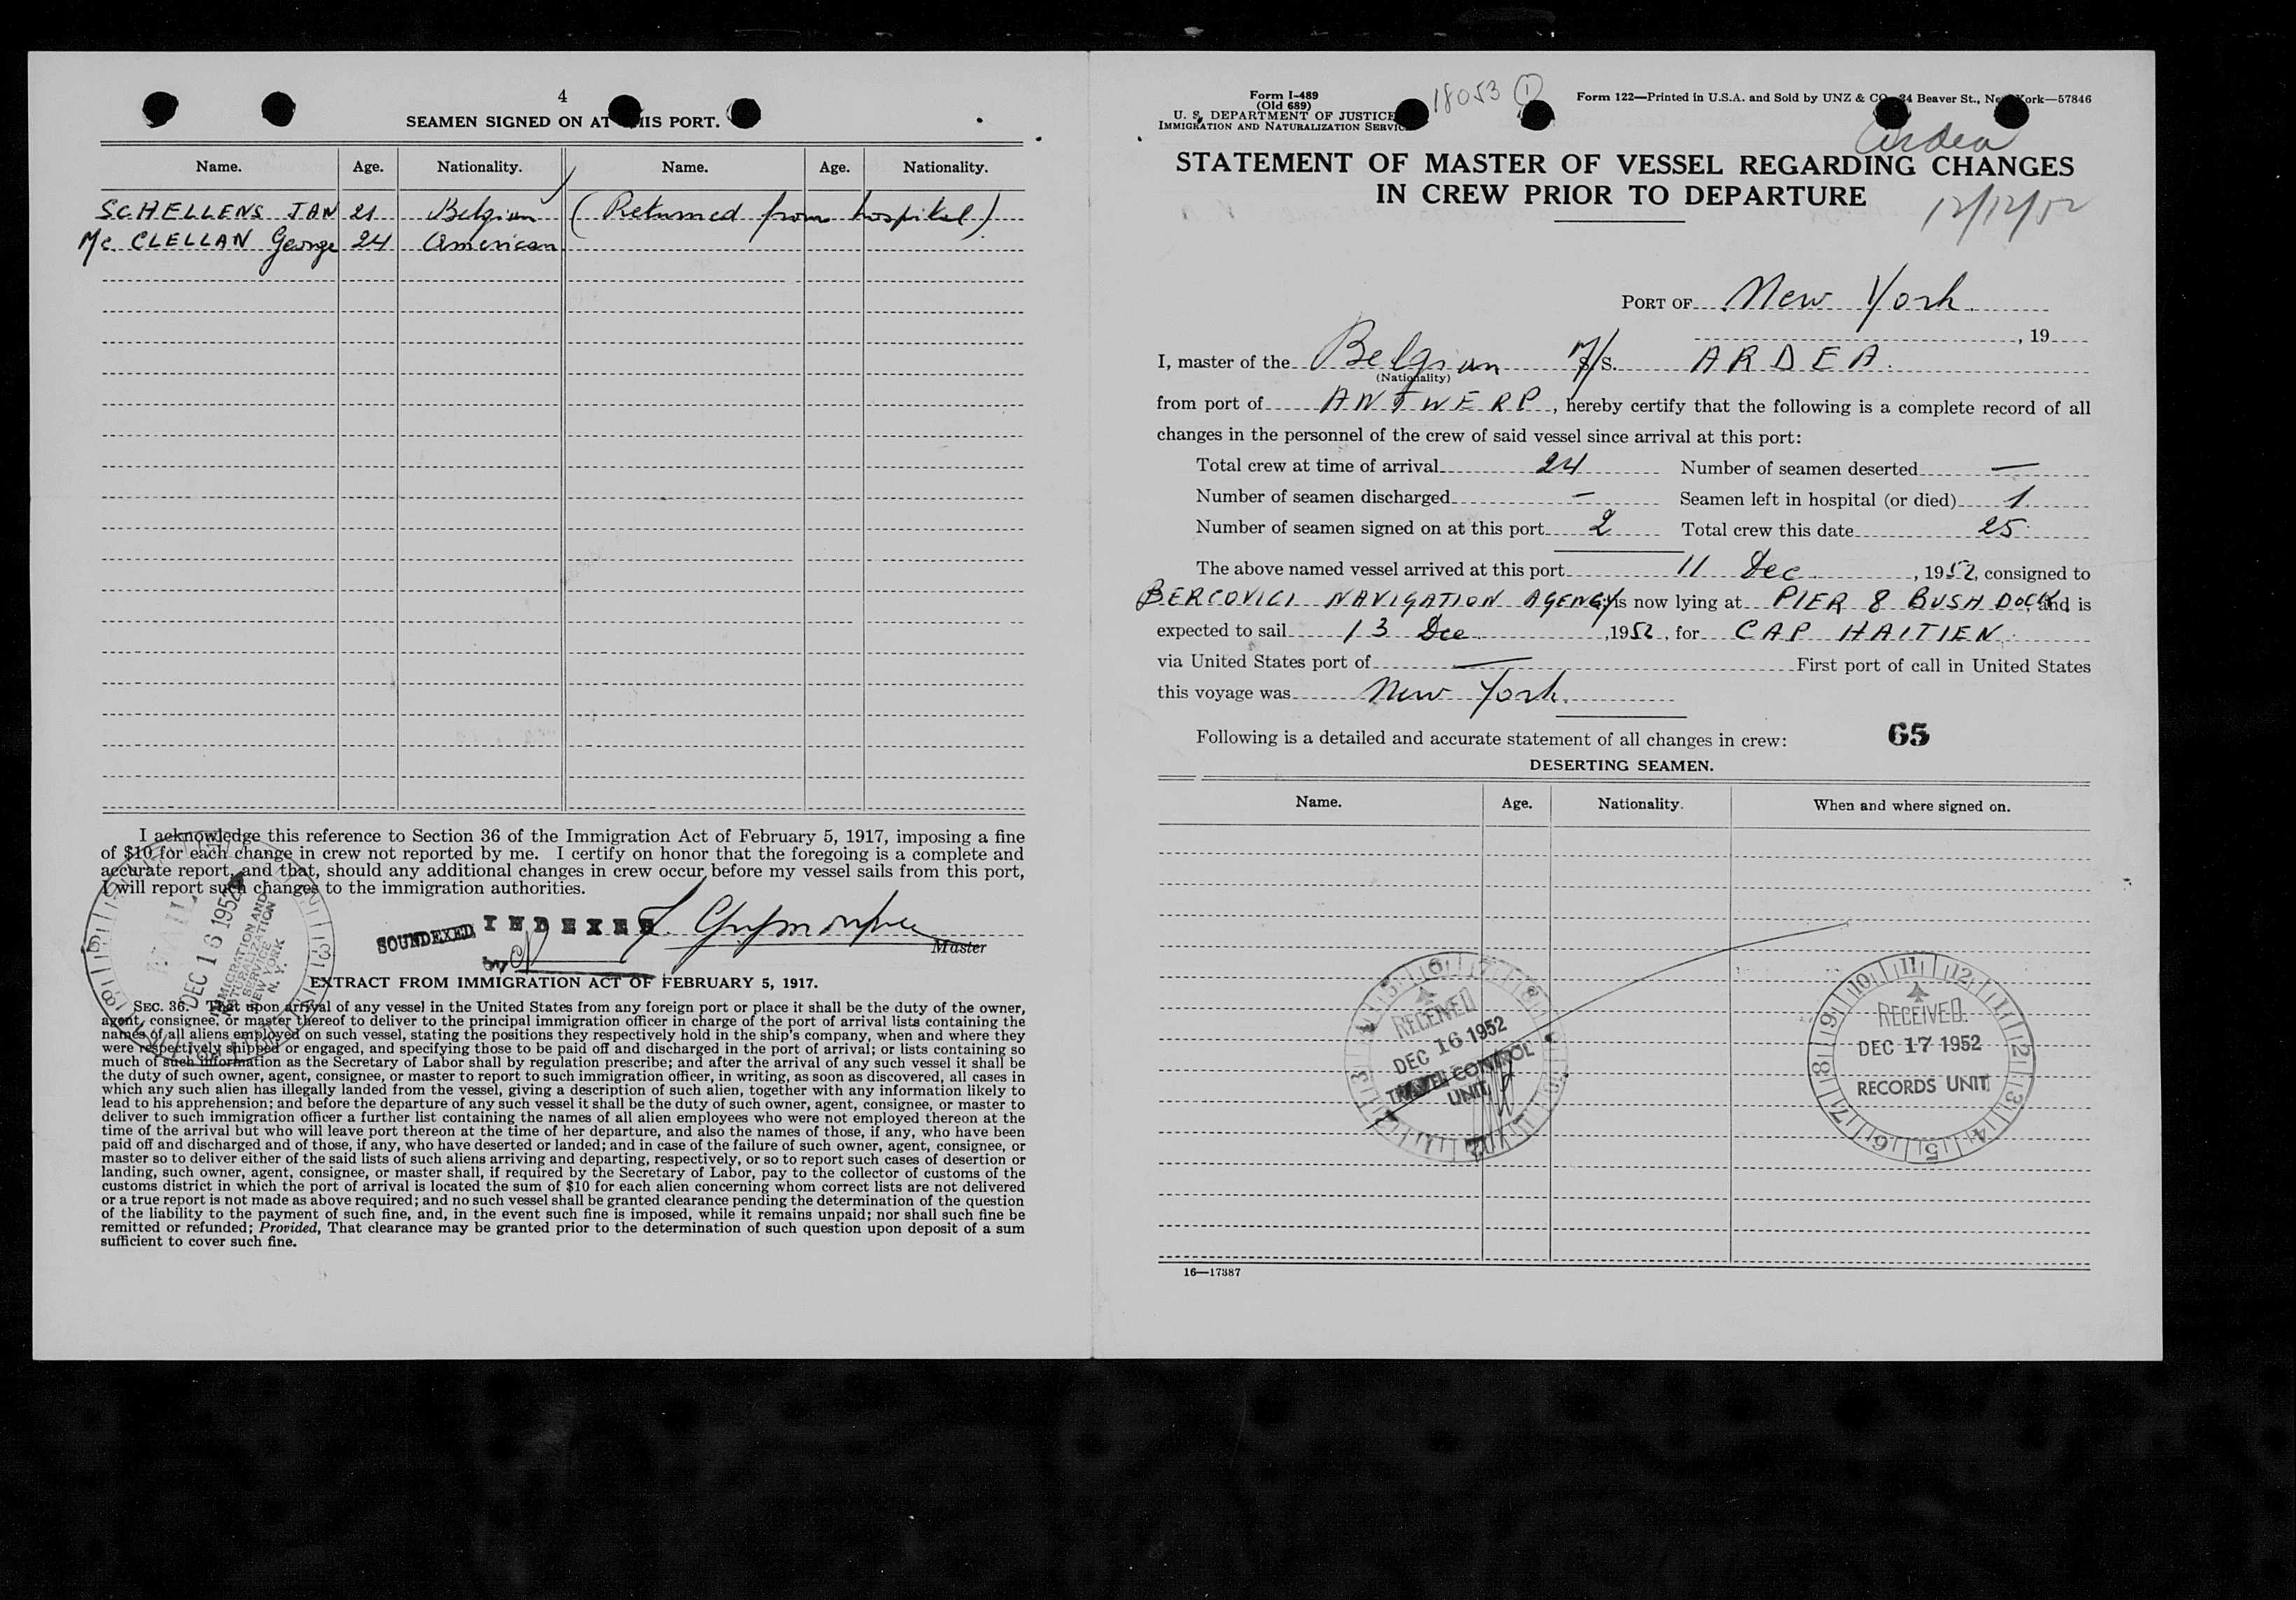 4
SEAMEN SIGNED ON AT THIS PORT.
Name. Age. Nationality. Name. Age. Nationality.
SCHELLENS JAN 21 Belgian (Returned from hospital)
Mc. CLELLAN George 24 American
I acknowledge this reference to Section 36 of the Immigration Act of February 5, 1917, imposing a fine
of $10 for each change in crew not reported by me. I certify on honor that the foregoing is a complete and
accurate report, and that, should any additional changes in crew occur before my vessel sails from this port,
I will report such changes to the immigration authorities.
MAIL
DEC 16 1952
IMMIGRATION AND
NATURALIZATION
SERVICE
NEW YORK
N. Y.
SOUNDEXED INDEXED
by
Master
EXTRACT FROM IMMIGRATION ACT OF FEBRUARY 5, 1917.
SEC. 36. That upon arrival of any vessel in the United States from any foreign port or place it shall be the duty of the owner,
agent, consignee, or master thereof to deliver to the principal immigration officer in charge of the port of arrival lists containing the
names of all aliens employed on such vessel, stating the positions they respectively hold in the ship's company, when and where they
were respectively shipped or engaged, and specifying those to be paid off and discharged in the port of arrival; or lists containing so
much of such information as the Secretary of Labor shall by regulation prescribe; and after the arrival of any such vessel it shall be
the duty of such owner, agent, consignee, or master to report to such immigration officer, in writing, as soon as discovered, all cases in
which any such alien has illegally landed from the vessel, giving a description of such alien, together with any information likely to
lead to his apprehension; and before the departure of any such vessel it shall be the duty of such owner, agent, consignee, or master to
deliver to such immigration officer a further list containing the names of all alien employees who were not employed thereon at the
time of the arrival but who will leave port thereon at the time of her departure, and also the names of those, if any, who have been
paid off and discharged and of those, if any, who have deserted or landed; and in case of the failure of such owner, agent, consignee, or
master so to deliver either of the said lists of such aliens arriving and departing, respectively, or so to report such cases of desertion or
landing, such owner, agent, consignee, or master shall, if required by the Secretary of Labor, pay to the collector of customs of the
customs district in which the port of arrival is located the sum of $10 for each alien concerning whom correct lists are not delivered
or a true report is not made as above required; and no such vessel shall be granted clearance pending the determination of the question
of the liability to the payment of such fine, and, in the event such fine is imposed, while it remains unpaid; nor shall such fine be
remitted or refunded; Provided, That clearance may be granted prior to the determination of such question upon deposit of a sum
sufficient to cover such fine.
Form I-489
(Old 689)
U. S. DEPARTMENT OF JUSTICE
IMMIGRATION AND NATURALIZATION SERVICE
18053 (1)
Form 122—Printed in U.S.A. and Sold by UNZ & CO., 24 Beaver St., New York—57846
Ardea
STATEMENT OF MASTER OF VESSEL REGARDING CHANGES
IN CREW PRIOR TO DEPARTURE
12/12/52
PORT OF New York.
, 19
I, master of the Belgian M/S. ARDEA.
(Nationality)
from port of ANTWERP, hereby certify that the following is a complete record of all
changes in the personnel of the crew of said vessel since arrival at this port:
Total crew at time of arrival 24 Number of seamen deserted —
Number of seamen discharged – Seamen left in hospital (or died) 1
Number of seamen signed on at this port 2 Total crew this date 25
The above named vessel arrived at this port 11 Dec. , 1952, consigned to
BERCOVICI NAVIGATION AGENCY is now lying at PIER 8 BUSH DOCK, and is
expected to sail 13 Dec. , 1952, for CAP HAITIEN.
via United States port of — First port of call in United States
this voyage was New York.
Following is a detailed and accurate statement of all changes in crew: 65
DESERTING SEAMEN.
Name. Age. Nationality. When and where signed on.
RECEIVED
DEC 16 1952
TRAVEL CONTROL
UNIT
RECEIVED
DEC 17 1952
RECORDS UNIT
16—17387